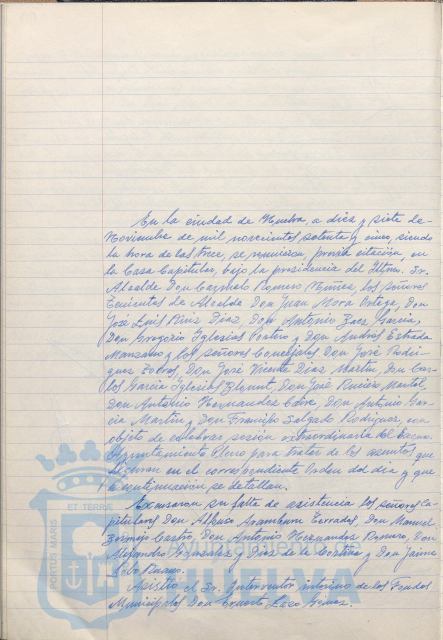 En la ciudad de Huelva a diez y siete de
Noviembre de mil novecientos setenta y cinco, siendo
la hora de las trece, se reunieron, previa citación, en
la Casa Capitular, bajo la presidencia del Iltmo. Sr.
Alcalde Don Carmelo Romero Núñez, los señores
Tenientes de Alcalde Don Juan Mora Ortega, Don
José Luis Ruiz Díaz, Don Antonio Báez García,
Don Gregorio Iglesias Pastero y Don Andrés Estrada
Manzano y los señores Concejales Don José Rodrí-
guez Don José Vicente Díaz Martín, Don Car-
los García Iglesias Don José
Don Antonio Hernández Don Antonio Gar-
cía Martín y Don Francisco Salgado Rodríguez, con
objeto de celebrar sesión extraordinaria del Excmo.
Ayuntamiento Pleno para tratar de los asuntos que
figuran en el correspondiente Orden del día y que
a continuación se detallan.
Excusaron su falta de asistencia los señores Ca-
pitulares Don Alfonso Aramburu Terrades, Don Manuel
Bermejo Castro, Don Antonio Hernández Romero, Don
Alejandro González y Díaz de la Cortina y Don Jaime

Asistió el Sr. Interventor interino de los Fondos
Municipales Don Ernesto
PORTUS MARIS
ET TERRAE
HUELVA